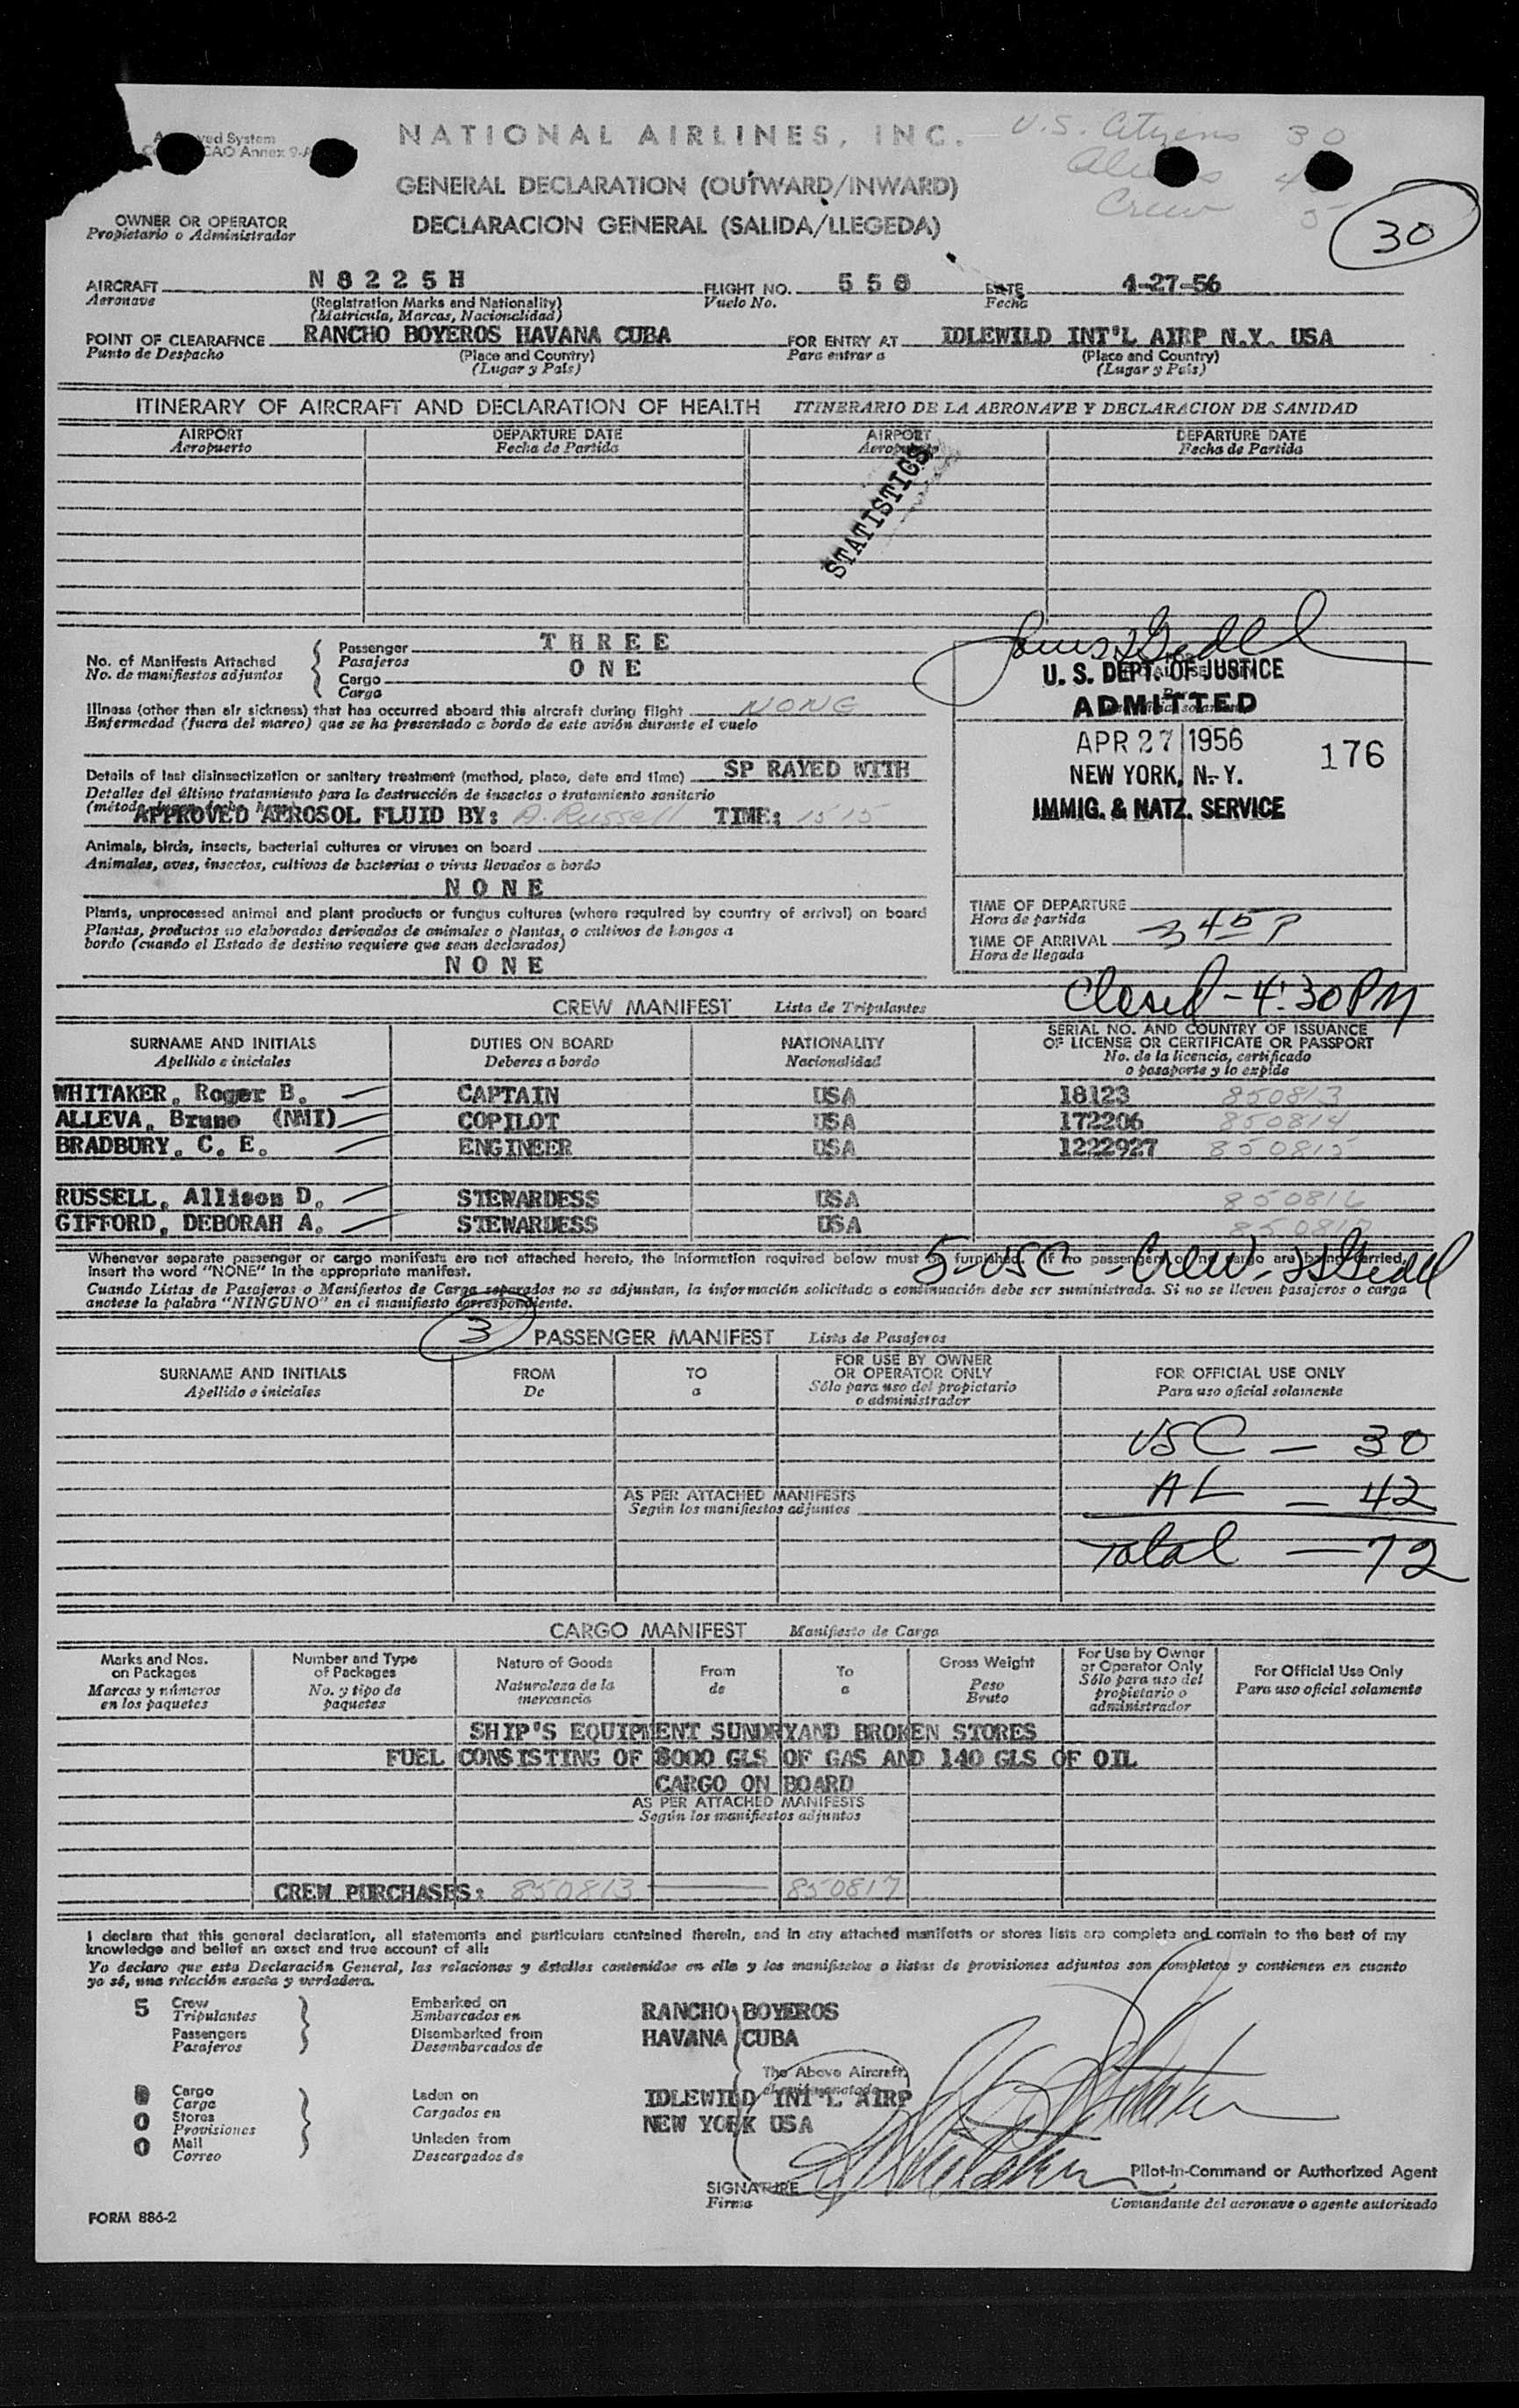 NATIONAL AIRLINES, INC.
U.S. Citizens 30
Crew 5
GENERAL DECLARATION (OUTWARD/INWARD)
DECLARACION GENERAL (SALIDA/LLEGEDA)
30
OWNER OR OPERATOR
Propietario o Administrador
AIRCRAFT N 8 2 2 5 H FLIGHT NO. DATE 4-27-56
Aeronave (Registration Marks and Nationality) Vuelo No. Fecha
(Matricula, Marcas, Nacionalidad)
POINT OF CLEARAFNCE RANCHO BOYEROS HAVANA CUBA FOR ENTRY AT IDLEWILD INT'L AIRP N.Y. USA
Punto de Despacho (Place and Country) Para entrar a (Place and Country)
(Lugar y País) (Lugar y País)
ITINERARY OF AIRCRAFT AND DECLARATION OF HEALTH ITINERARIO DE LA AERONAVE Y DECLARACION DE SANIDAD
AIRPORT DEPARTURE DATE AIRPORT DEPARTURE DATE
Aeropuerto Fecha de Partida Aeropuerto Fecha de Partida
STATISTICS
No. of Manifests Attached Passenger T H R E E
No. de manifiestos adjuntos Pasajeros
Cargo O N E
Carga
Illness (other than air sickness) that has occurred aboard this aircraft during flight NONE
Enfermedad (fuera del mareo) que se ha presentado a bordo de este avión durante el vuelo
Details of last disinsectization or sanitary treatment (method, place, date and time) SP RAYED WITH
Detalles del último tratamiento para la destrucción de insectos o tratamiento sanitario
APPROVED AEROSOL FLUID BY: A. Russell TIME: 1515
Animals, birds, insects, bacterial cultures or viruses on board
Animales, aves, insectos, cultivos de bacterias o virus llevados a bordo
N O N E
Plants, unprocessed animal and plant products or fungus cultures (where required by country of arrival) on board
Plantas, productos no elaborados derivados de animales o plantas, o cultivos de hongos a
bordo (cuando el Estado de destino requiere que sean declarados)
N O N E
U. S. DEPT. OF JUSTICE
ADMITTED
APR 27 1956 176
NEW YORK, N. Y.
IMMIG. & NATZ. SERVICE
TIME OF DEPARTURE
Hora de partida
TIME OF ARRIVAL 3 45 P
Hora de llegada
Closed - 4:30 PM
CREW MANIFEST Lista de Tripulantes
SURNAME AND INITIALS DUTIES ON BOARD NATIONALITY SERIAL NO. AND COUNTRY OF ISSUANCE
OF LICENSE OR CERTIFICATE OR PASSPORT
Apellido e iniciales Deberes a bordo Nacionalidad No. de la licencia, certificado
o pasaporte y lo expide
WHITAKER, Roger B. CAPTAIN USA 18123 850813
ALLEVA, Bruno (NMI) COPILOT USA 172206 850814
BRADBURY, C. E. ENGINEER USA 1222927 850815
RUSSELL, Allison D. STEWARDESS USA 850816
GIFFORD, DEBORAH A. STEWARDESS USA
Whenever separate passenger or cargo manifests are not attached hereto, the information required below must be furnished. If no passengers or no cargo are being carried,
insert the word "NONE" in the appropriate manifest.
5-USC - Crew -
Cuando Listas de Pasajeros o Manifiestos de Carga separados no se adjuntan, la información solicitada a continuación debe ser suministrada. Si no se lleven pasajeros o carga
anotese la palabra "NINGUNO" en el manifiesto correspondiente.
3 PASSENGER MANIFEST Lista de Pasajeros
SURNAME AND INITIALS FROM TO FOR USE BY OWNER OR OPERATOR ONLY FOR OFFICIAL USE ONLY
Apellido e iniciales De a Sólo para uso del propietario o administrador Para uso oficial solamente
USC - 30
AS PER ATTACHED MANIFESTS AL - 42
Según los manifiestos adjuntos
Total - 72
CARGO MANIFEST Manifiesto de Carga
Marks and Nos. on Packages Number and Type of Packages Nature of Goods From To Gross Weight For Use by Owner or Operator Only For Official Use Only
Marcas y números en los paquetes No. y tipo de paquetes Naturaleza de la mercancia de a Peso Bruto Sólo para uso del propietario o administrador Para uso oficial solamente
SHIP'S EQUIPMENT SUNDRYAND BROKEN STORES
FUEL CONSISTING OF GLS OF GAS AND 140 GLS OF OIL
CARGO ON BOARD
AS PER ATTACHED MANIFESTS
Según los manifiestos adjuntos
CREW PURCHASES: 850813 850817
I declare that this general declaration, all statements and particulars contained therein, and in any attached manifests or stores lists are complete and contain to the best of my
knowledge and belief an exact and true account of all:
Yo declaro que esta Declaración General, las relaciones y detalles contenidos en ella y los manifiestos o listas de provisiones adjuntos son completos y contienen en cuanto
yo sé, una relación exacta y verdadera.
5 Crew Embarked on RANCHO BOYEROS
Tripulantes Embarcados en
Passengers Disembarked from HAVANA CUBA
Pasajeros Desembarcados de
The Above Aircraft
Cargo Laden on IDLEWILD INT'L AIRP
Carga Cargados en
0 Stores NEW YORK USA
Provisiones
0 Mail Unladen from
Correo Descargados de
SIGNATURE Pilot-in-Command or Authorized Agent
Firma Comandante del aeronave o agente autorizado
FORM 886-2